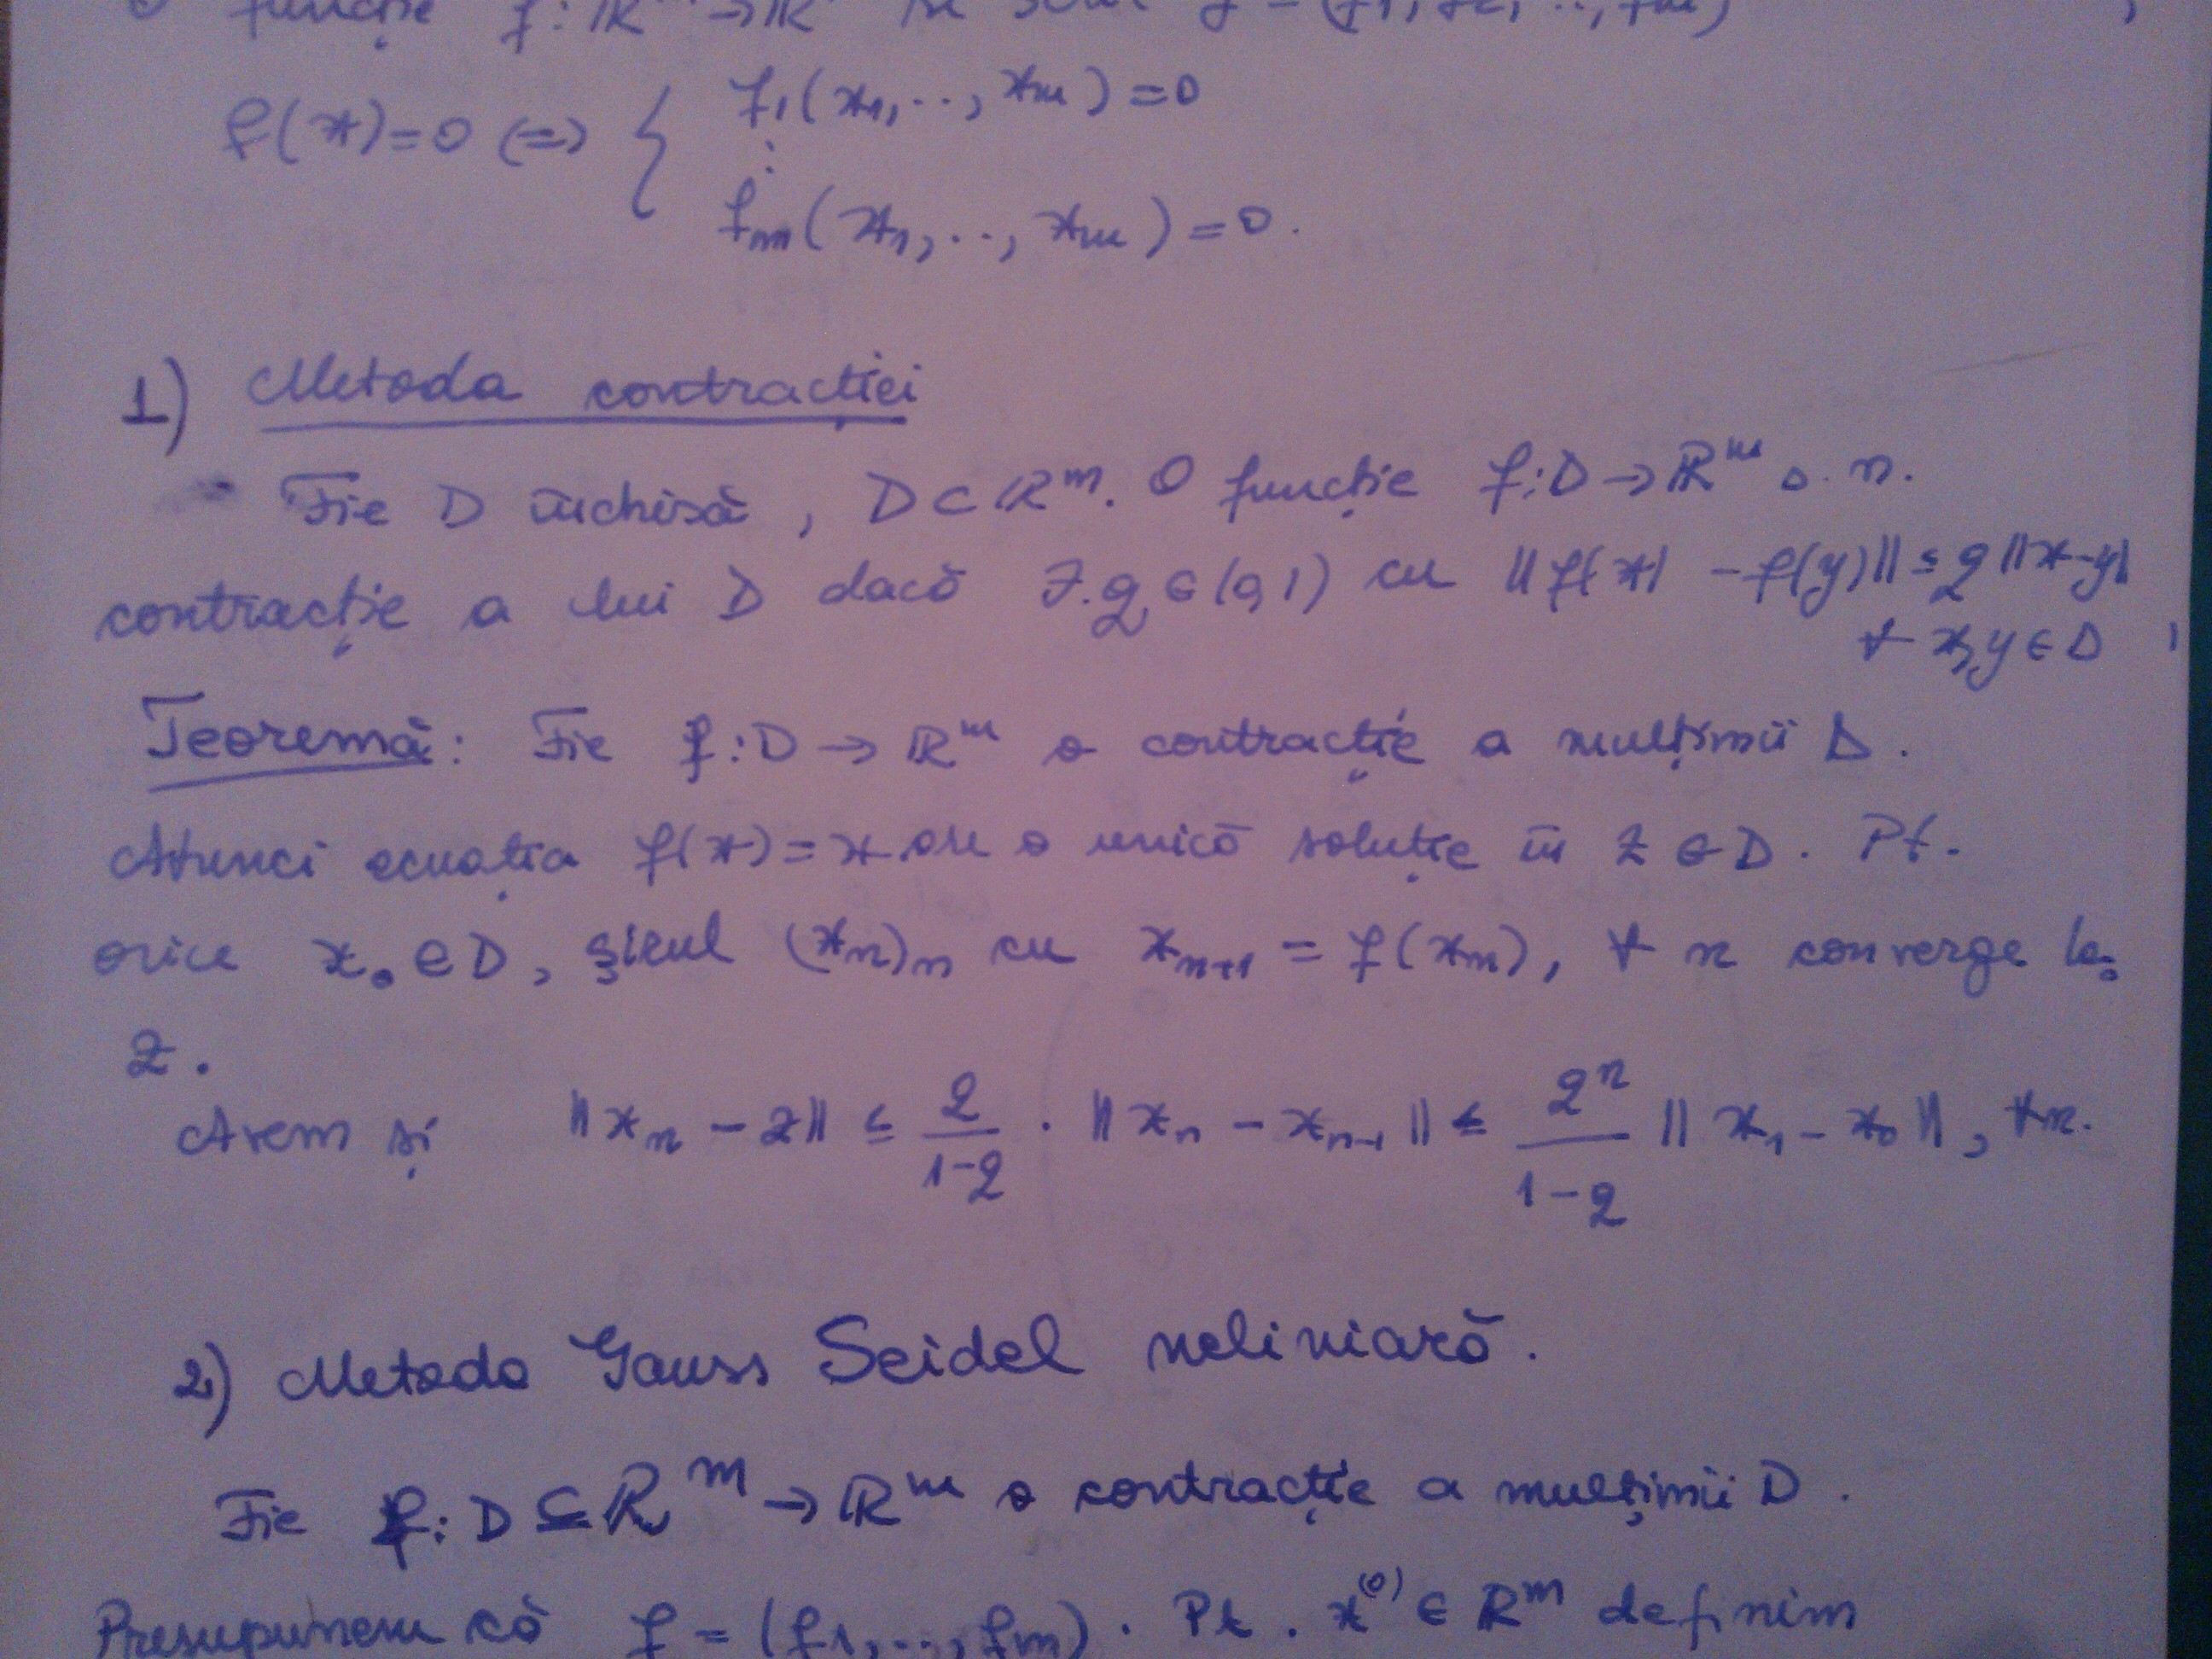 O funcție f: ℝ^m → ℝ^m se scrie f = (f1, f2, .., fm)
f(x)=0 (=> { f1(x1,..,xm)=0
⋮
fm(x1,..,xm)=0.
1) Metoda contracției
Fie D închisă, D⊂ℝ^m. O funcție f:D→ℝ^m s.n.
contracție a lui D dacă ∃. q∈(0,1) cu ||f(x) - f(y)|| ≤ q||x-y||
∀ x,y∈D
Teoremă: Fie f:D→ℝ^m o contracție a mulțimii D.
Atunci ecuația f(x)=x are o unică soluție în z∈D. Pt.
orice x_0∈D, șirul (x_n)_n cu x_{n+1} = f(x_n), ∀ n converge la
z.
Avem și ||x_n - z|| ≤ q/(1-q) · ||x_n - x_{n-1}|| ≤ q^n/(1-q) ||x_1 - x_0||, ∀n.
2) Metoda Gauss Seidel neliniară.
Fie f: D⊆ℝ^m → ℝ^m o contracție a mulțimii D.
Presupunem că f = (f1,..,fm). Pt. x^(0) ∈ ℝ^m definim